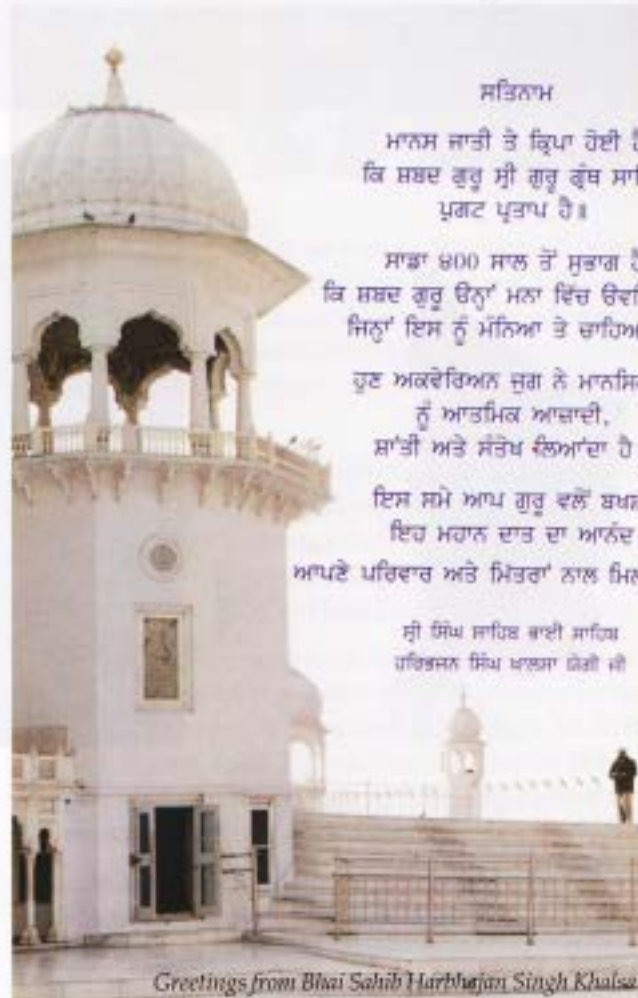 ਸਤਿਨਾਮ
ਮਾਨਸ ਜਾਤੀ ਤੇ ਕ੍ਰਿਪਾ ਹੋਈ
ਕਿ ਸ਼ਬਦ ਗੁਰੂ ਸ੍ਰੀ ਗੁਰੂ ਗ੍ਰੰਥ
ਪ੍ਰਗਟ ਪ੍ਰਤਾਪ ਹੈ॥
ਸਾਡਾ ੪00 ਸਾਲ ਤੋਂ ਸੁਭਾਗ
ਕਿ ਸ਼ਬਦ ਗੁਰੂ ਓਨ੍ਹਾਂ ਮਨਾ ਵਿੱਚ
ਜਿਨ੍ਹਾਂ ਇਸ ਨੂੰ ਮੰਨਿਆ ਤੇ
ਹੁਣ ਅਕਵੇਰਿਅਨ ਜੁਗ ਨੇ
ਨੂੰ ਆਤਮਿਕ ਆਜ਼ਾਦੀ,
ਸ਼ਾਂਤੀ ਅਤੇ ਸੰਤੋਖ ਲਿਆਂਦਾ ਹੈ
ਇਸ ਸਮੇ ਆਪ ਗੁਰੂ ਵਲੋਂ
ਇਹ ਮਹਾਨ ਦਾਤ ਦਾ ਆਨੰਦ
ਆਪਣੇ ਪਰਿਵਾਰ ਅਤੇ ਮਿੱਤਰਾਂ ਨਾਲ
ਸ੍ਰੀ ਸਿੰਘ ਸਾਹਿਬ ਭਾਈ ਸਾਹਿਬ
ਹਰਿਭਜਨ ਸਿੰਘ ਖਾਲਸਾ ਯੋਗੀ ਜੀ
Greetings from Bhai Sahib Harbhajan Singh Khalsa